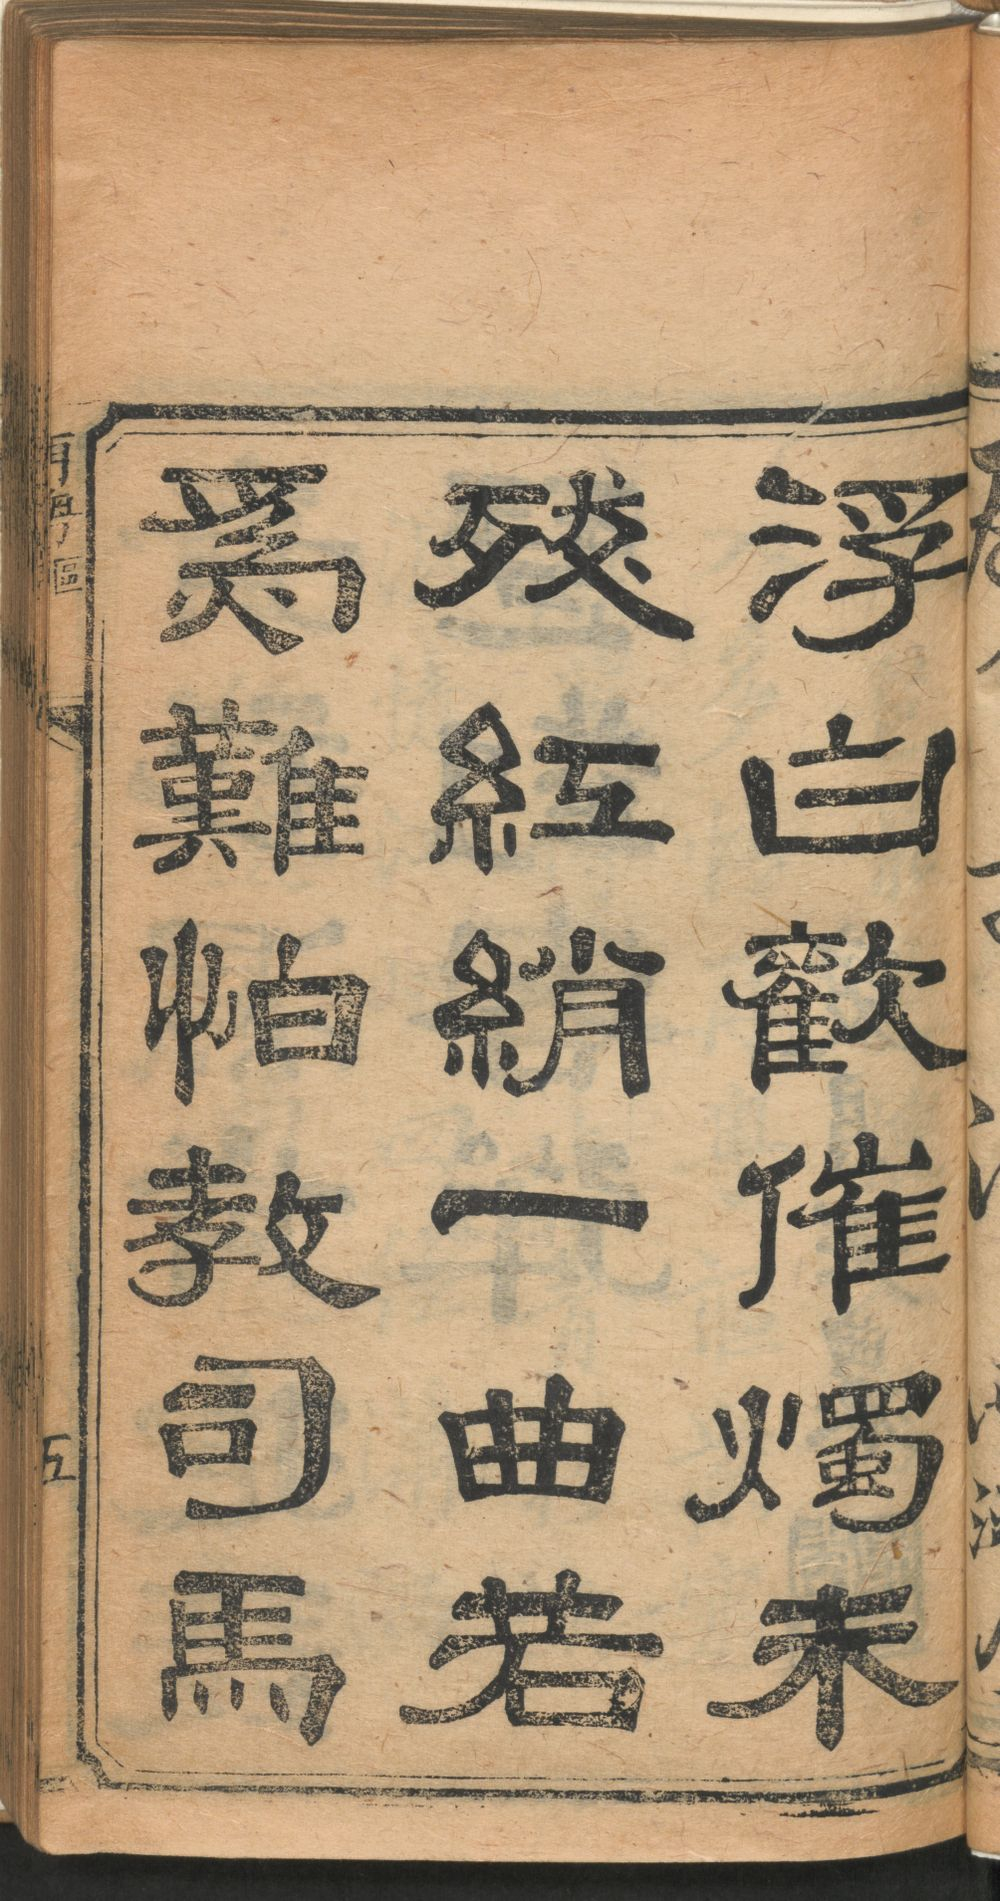 浮白歡催燭未
殘紅綃一曲若
爲難帕教司馬
五